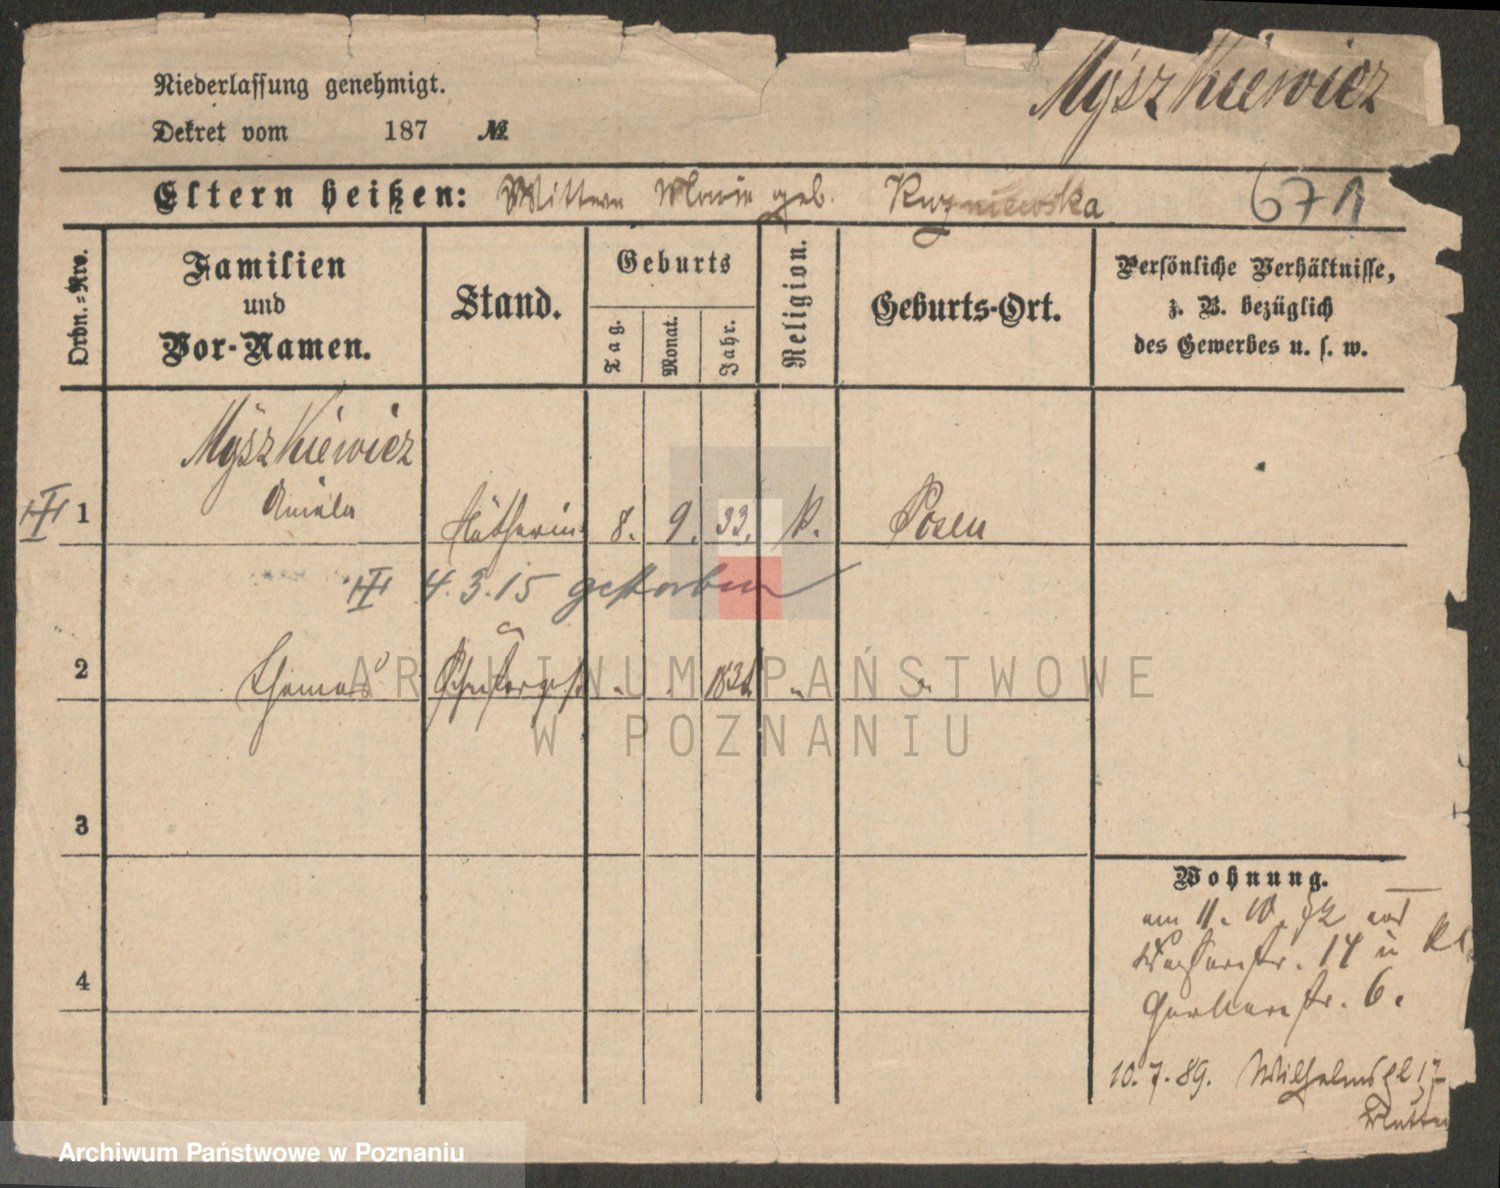 Niederlassung genehmigt.
Myszkiewicz
Dekret vom 187 №
Eltern heißen: Marie geb.
671
Ordn.=Nro.
Familien
und
Vor-Namen.
Stand.
Geburts
Tag.
Monat.
Jahr.
Religion.
Geburts-Ort.
Persönliche Verhältnisse,
z. B. bezüglich
des Gewerbes u. s. w.
Myszkiewicz
1 Nätherin 8. 9. 33. k. Posen
4.3.15 gestorben
2 Thomas
ARCHIWUM PAŃSTWOWE
W POZNANIU
3
Wohnung.
am 11. 10. 82 aus
14 u Kl
4
Gerberstr. 6.
10. 7. 89. Wilhelmspl 17
Mutter
Archiwum Państwowe w Poznaniu